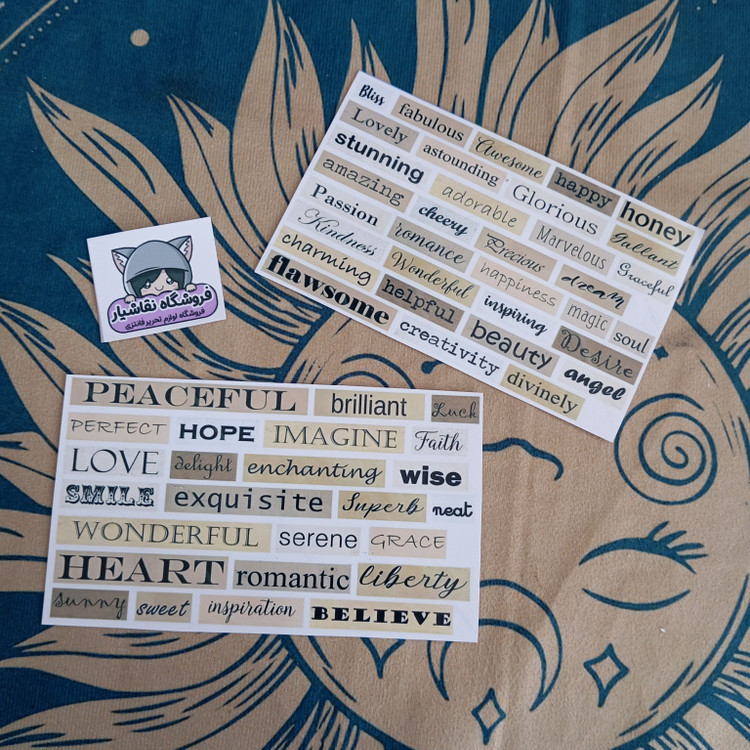 Bliss fabulous Awesome happy honey
Lovely astounding Glorious Gallant
stunning adorable Marvelous Graceful
amazing cheery Precious dream
Passion romance happiness magic soul
Kindness Wonderful inspiring Desire
charming helpful beauty angel
flawsome creativity divinely
فروشگاه نقاشیار
فروشگاه لوازم تحریر فانتزی
PEACEFUL brilliant Luck
PERFECT HOPE IMAGINE Faith
LOVE delight enchanting wise
SMILE exquisite Superb neat
WONDERFUL serene GRACE
HEART romantic liberty
sunny sweet inspiration BELIEVE